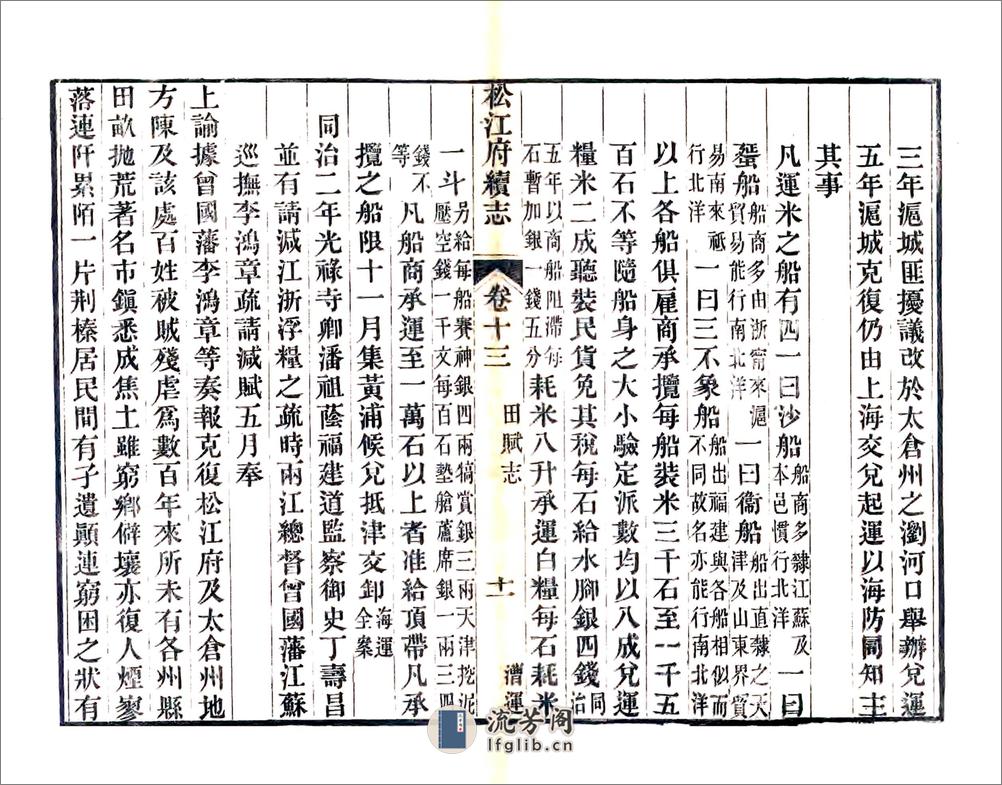 三年滬城匪擾議改於太倉州之瀏河口舉辦兌運
五年滬城克復仍由上海交兌起運以海防同知主
其事
凡運米之船有四一曰沙船船商多隸江蘇及本邑慣行北洋一曰
蜑船船商多由浙甯來滬貿易能行南北洋一曰衞船船出直隸之天津及山東界貿
易南來祗行北洋一曰三不象船船出福建與各船相似而不同故名亦能行南北洋
以上各船俱雇商承攬每船裝米三千石至一千五
百石不等隨船身之大小驗定派數均以八成兌運
糧米二成聽裝民貨免其稅每石給水腳銀四錢同治
五年以商船阻滯每石暫加銀一錢五分耗米八升承運白糧每石耗米
松江府續志
卷十三
田賦志
十一
漕運
一斗另給每船賽神銀四兩犒賞銀三兩天津挖泥壓空錢一千文每百石墊艙蘆席銀一兩三四
錢不等凡船商承運至一萬石以上者准給頂帶凡承
攬之船限十一月集黃浦候兌抵津交卸海運全案
同治二年光祿寺卿潘祖蔭福建道監察御史丁壽昌
並有請減江浙浮糧之疏時兩江總督曾國藩江蘇
巡撫李鴻章疏請減賦五月奉
上諭據曾國藩李鴻章等奏報克復松江府及太倉州地
方陳及該處百姓被賊殘虐爲數百年來所未有各州縣
田畝拋荒著名市鎮悉成焦土雖窮鄉僻壤亦復人煙寥
落連阡累陌一片荆榛居民間有孑遺顚連窮困之狀有
流芳阁
lfglib.cn